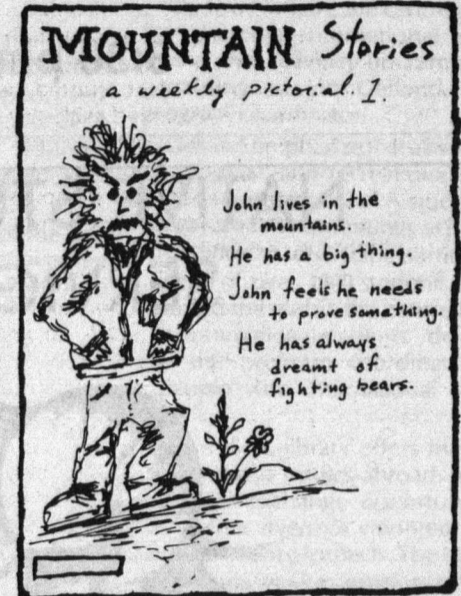 MOUNTAIN Stories
a weekly pictorial. 1.
John lives in the
mountains.
He has a big thing.
John feels he needs
to prove something.
He has always
dreamt of
fighting bears.